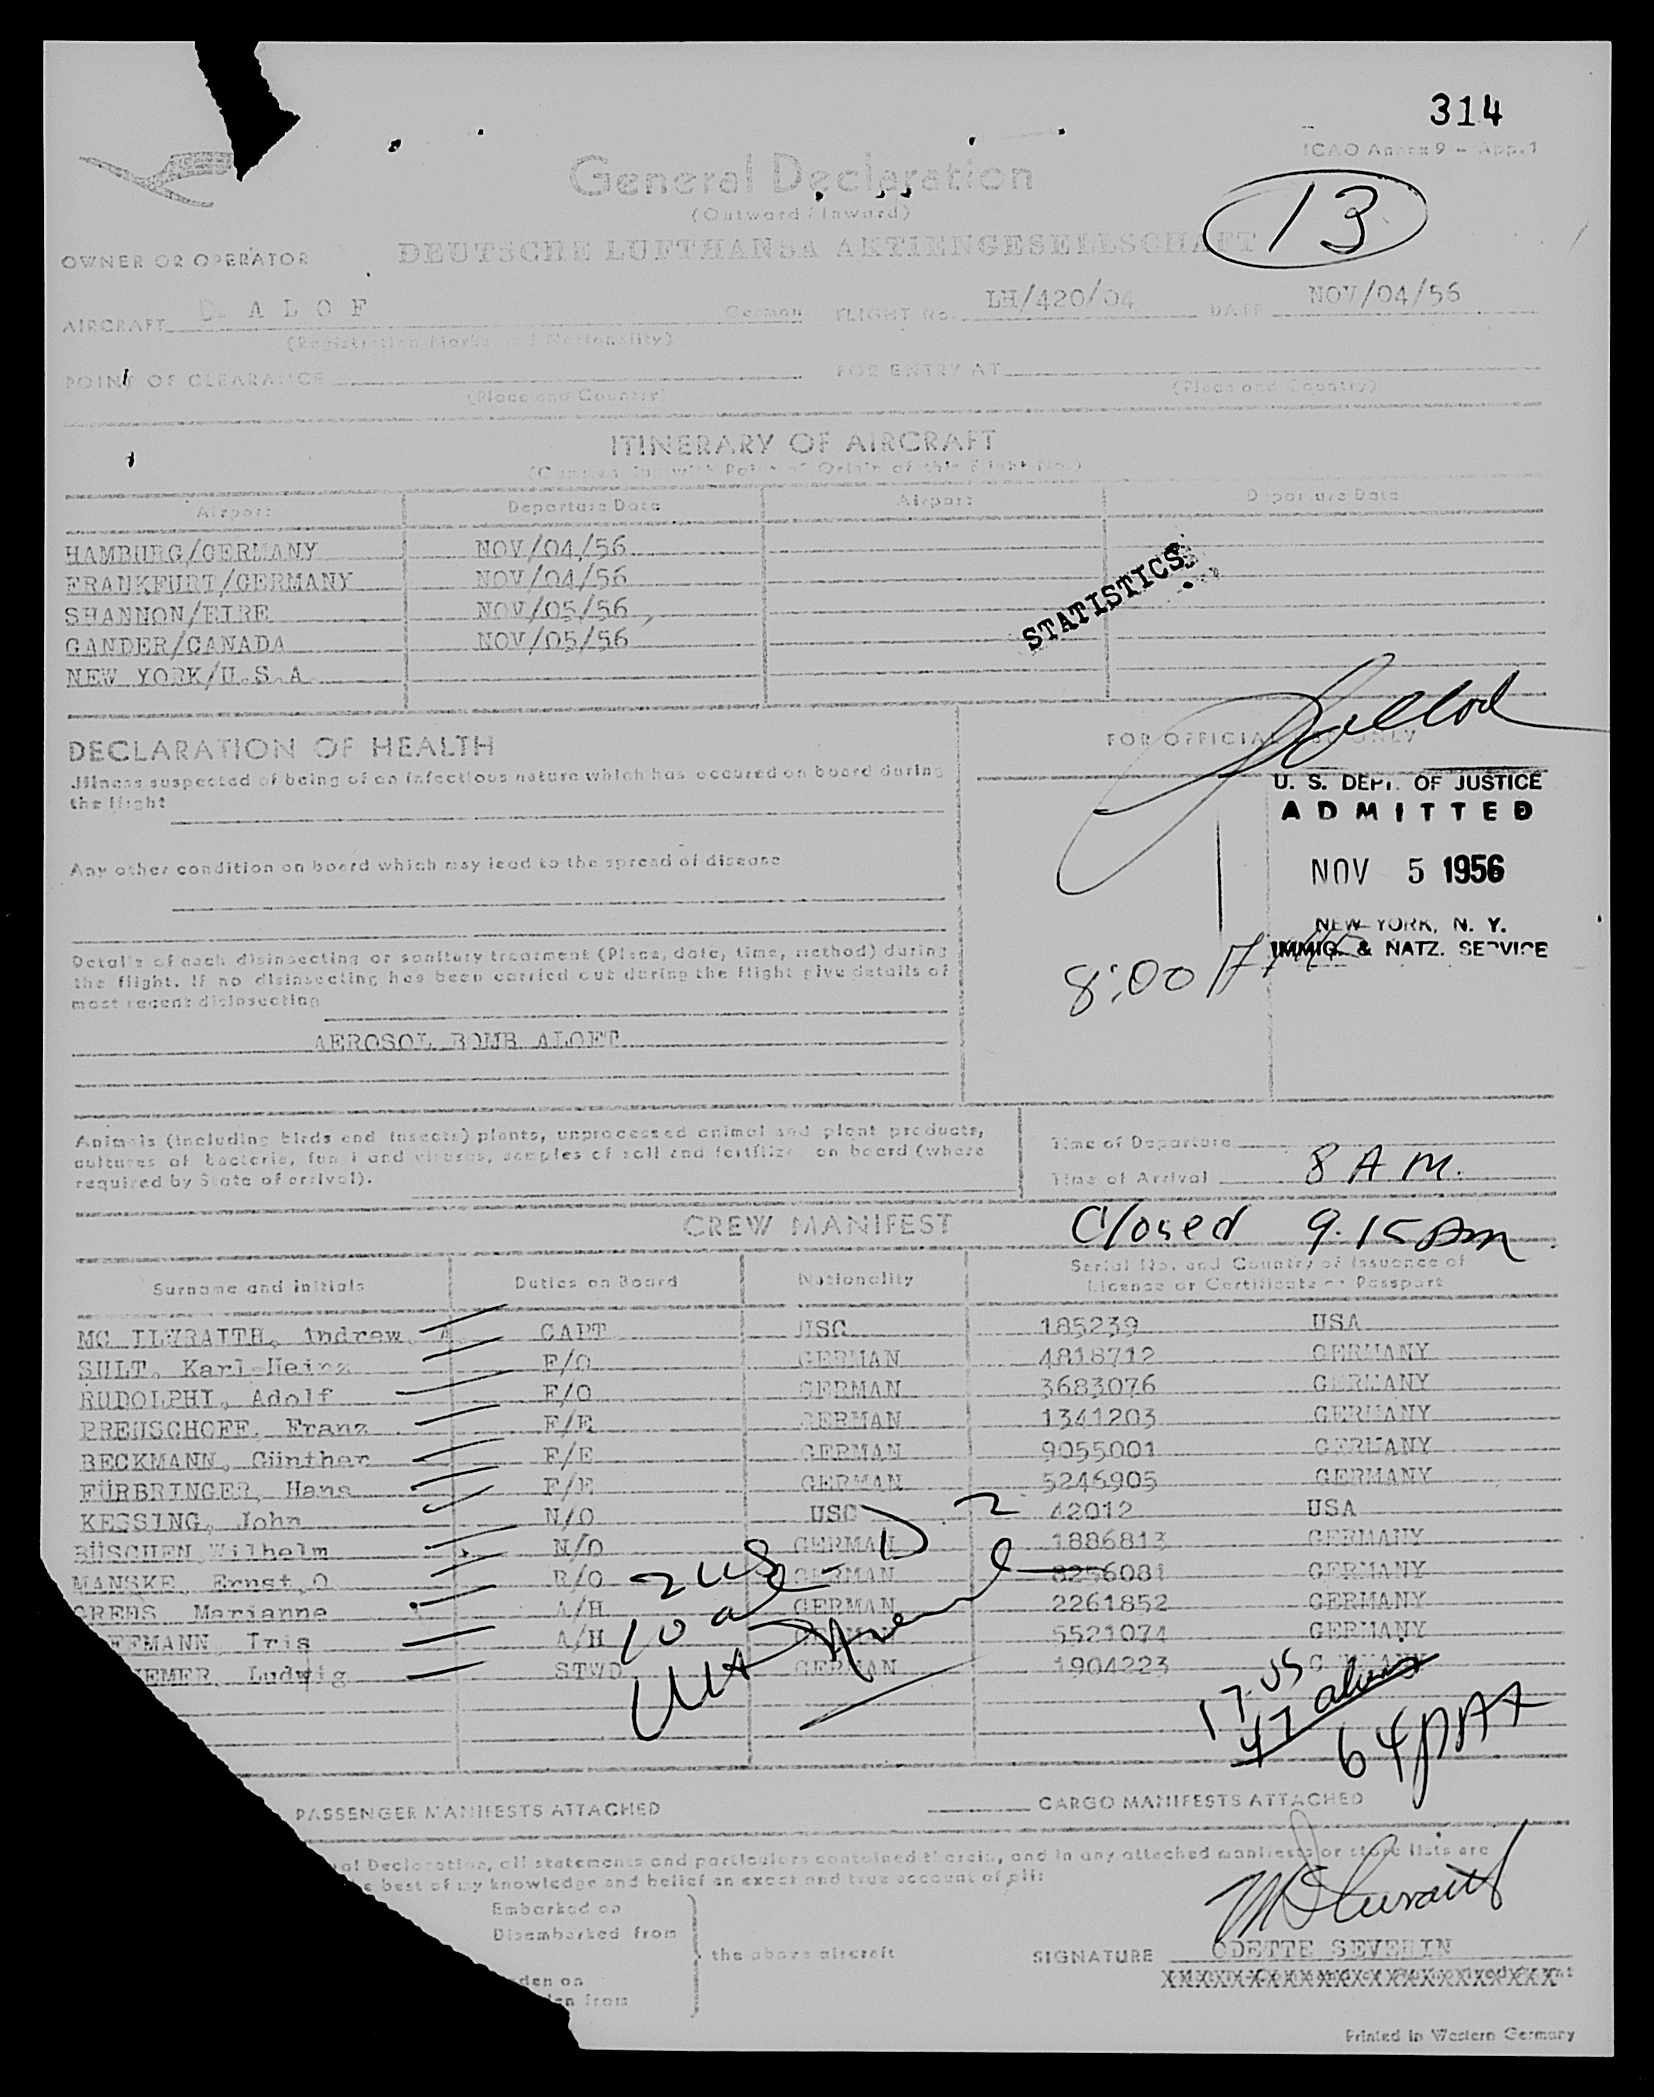 314
ICAO Annex 9 - App.1
General Declaration
(Outward / Inward)
13
OWNER OR OPERATOR DEUTSCHE LUFTHANSA AKTIENGESELLSCHAFT
AIRCRAFT D. A L O F German FLIGHT No. LH/420/04 DATE NOV/04/56
(Registration Marks and Nationality)
POINT OF CLEARANCE FOR ENTRY AT
(Place and Country) (Place and Country)
ITINERARY OF AIRCRAFT
Airport Departure Date Airport Departure Date
HAMBURG/GERMANY NOV/04/56
FRANKFURT/GERMANY NOV/04/56
SHANNON/EIRE NOV/05/56
GANDER/CANADA NOV/05/56
NEW YORK/U.S.A.
STATISTICS
DECLARATION OF HEALTH
FOR OFFICIAL USE ONLY
Illness suspected of being of an infectious nature which has occured on board during
the flight
U. S. DEPT. OF JUSTICE
ADMITTED
NOV 5 1956
NEW YORK, N. Y.
IMMIG. & NATZ. SERVICE
8:00 AM
Any other condition on board which may lead to the spread of disease
Details of each disinsecting or sanitary treatment (Place, date, time, method) during
the flight. If no disinsecting has been carried out during the flight give details of
most recent disinsecting
AEROSOL BOMB ALOFT
Animals (including birds and insects) plants, unprocessed animal and plant products,
cultures of bacteria, fungi and viruses, samples of soil and fertilizer on board (where
required by State of arrival).
Time of Departure
Time of Arrival 8 AM.
CREW MANIFEST
Closed 9.15 am
Surname and initials Duties on Board Nationality Serial No. and Country of Issuance of
License or Certificate or Passport
MC ILWRAITH, Andrew A. CAPT USC 185239 USA
SULT, Karl-Heinz F/O GERMAN 4818712 GERMANY
RUDOLPHI, Adolf F/O GERMAN 3683076 GERMANY
PREUSCHOFF, Franz F/E GERMAN 1341203 GERMANY
BECKMANN, Günther F/E GERMAN 9055001 GERMANY
FÜRBRINGER, Hans F/E GERMAN 5246905 GERMANY
KESSING, John N/O USC 42012 USA
BÜSCHEN Wilhelm N/O GERMAN 1886813 GERMANY
MANSKE, Ernst,O R/O GERMAN 8256081 GERMANY
Marianne A/H GERMAN 2261852 GERMANY
Iris A/H GERMAN 5521074 GERMANY
Ludwig STWD GERMAN 1904223 GERMANY
17 US
47 alien
64 PAX
PASSENGER MANIFESTS ATTACHED
CARGO MANIFESTS ATTACHED
al Declaration, all statements and particulars contained therein, and in any attached manifests or store lists are
e best of my knowledge and belief an exact and true account of
Embarked on
Disembarked from
the above aircraft
den on
en from
SIGNATURE ODETTE SEVERIN
Printed in Western Germany